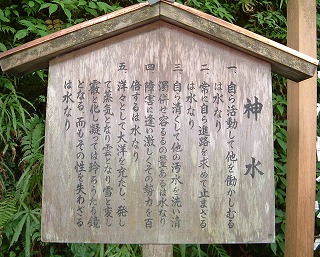 神水
一、自ら活動して他を働かしむる
は水なり
二、常に自ら進路を求めて止まざる
は水なり
三、自ら清くして他の汚水を洗い清
濁併せ容るるの量あるは水なり
四、障害に逢い激しくその勢力を百
倍するは水なり
五、洋々として大洋を充たし、発し
て蒸気となり雲となり雪と変じ
霰と化し凝っては玲ろうたる鏡
となる而もその性を失わざる
は水なり